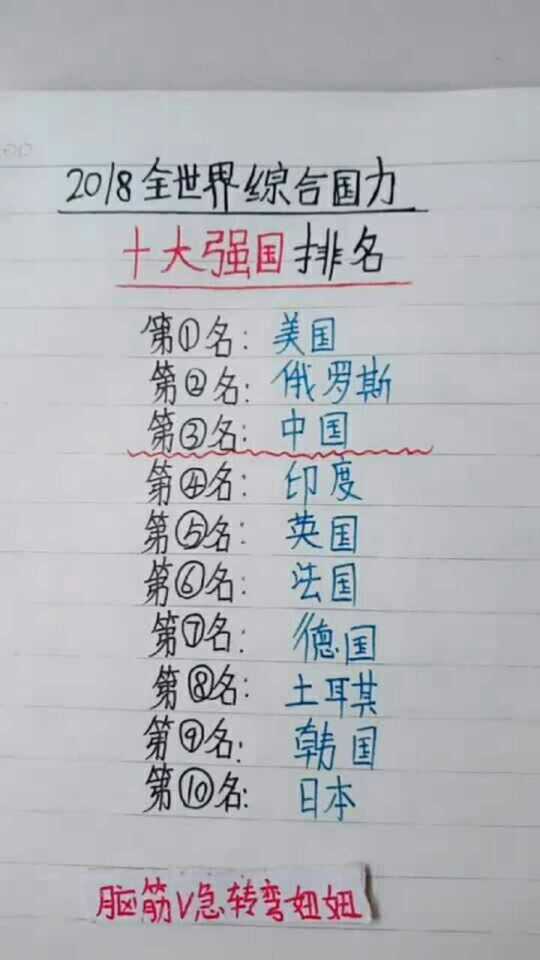 2018全世界综合国力
十大强国排名
第①名：美国
第②名：俄罗斯
第③名：中国
第④名：印度
第⑤名：英国
第⑥名：法国
第⑦名：德国
第⑧名：土耳其
第⑨名：韩国
第⑩名：日本
脑筋V急转弯妞妞